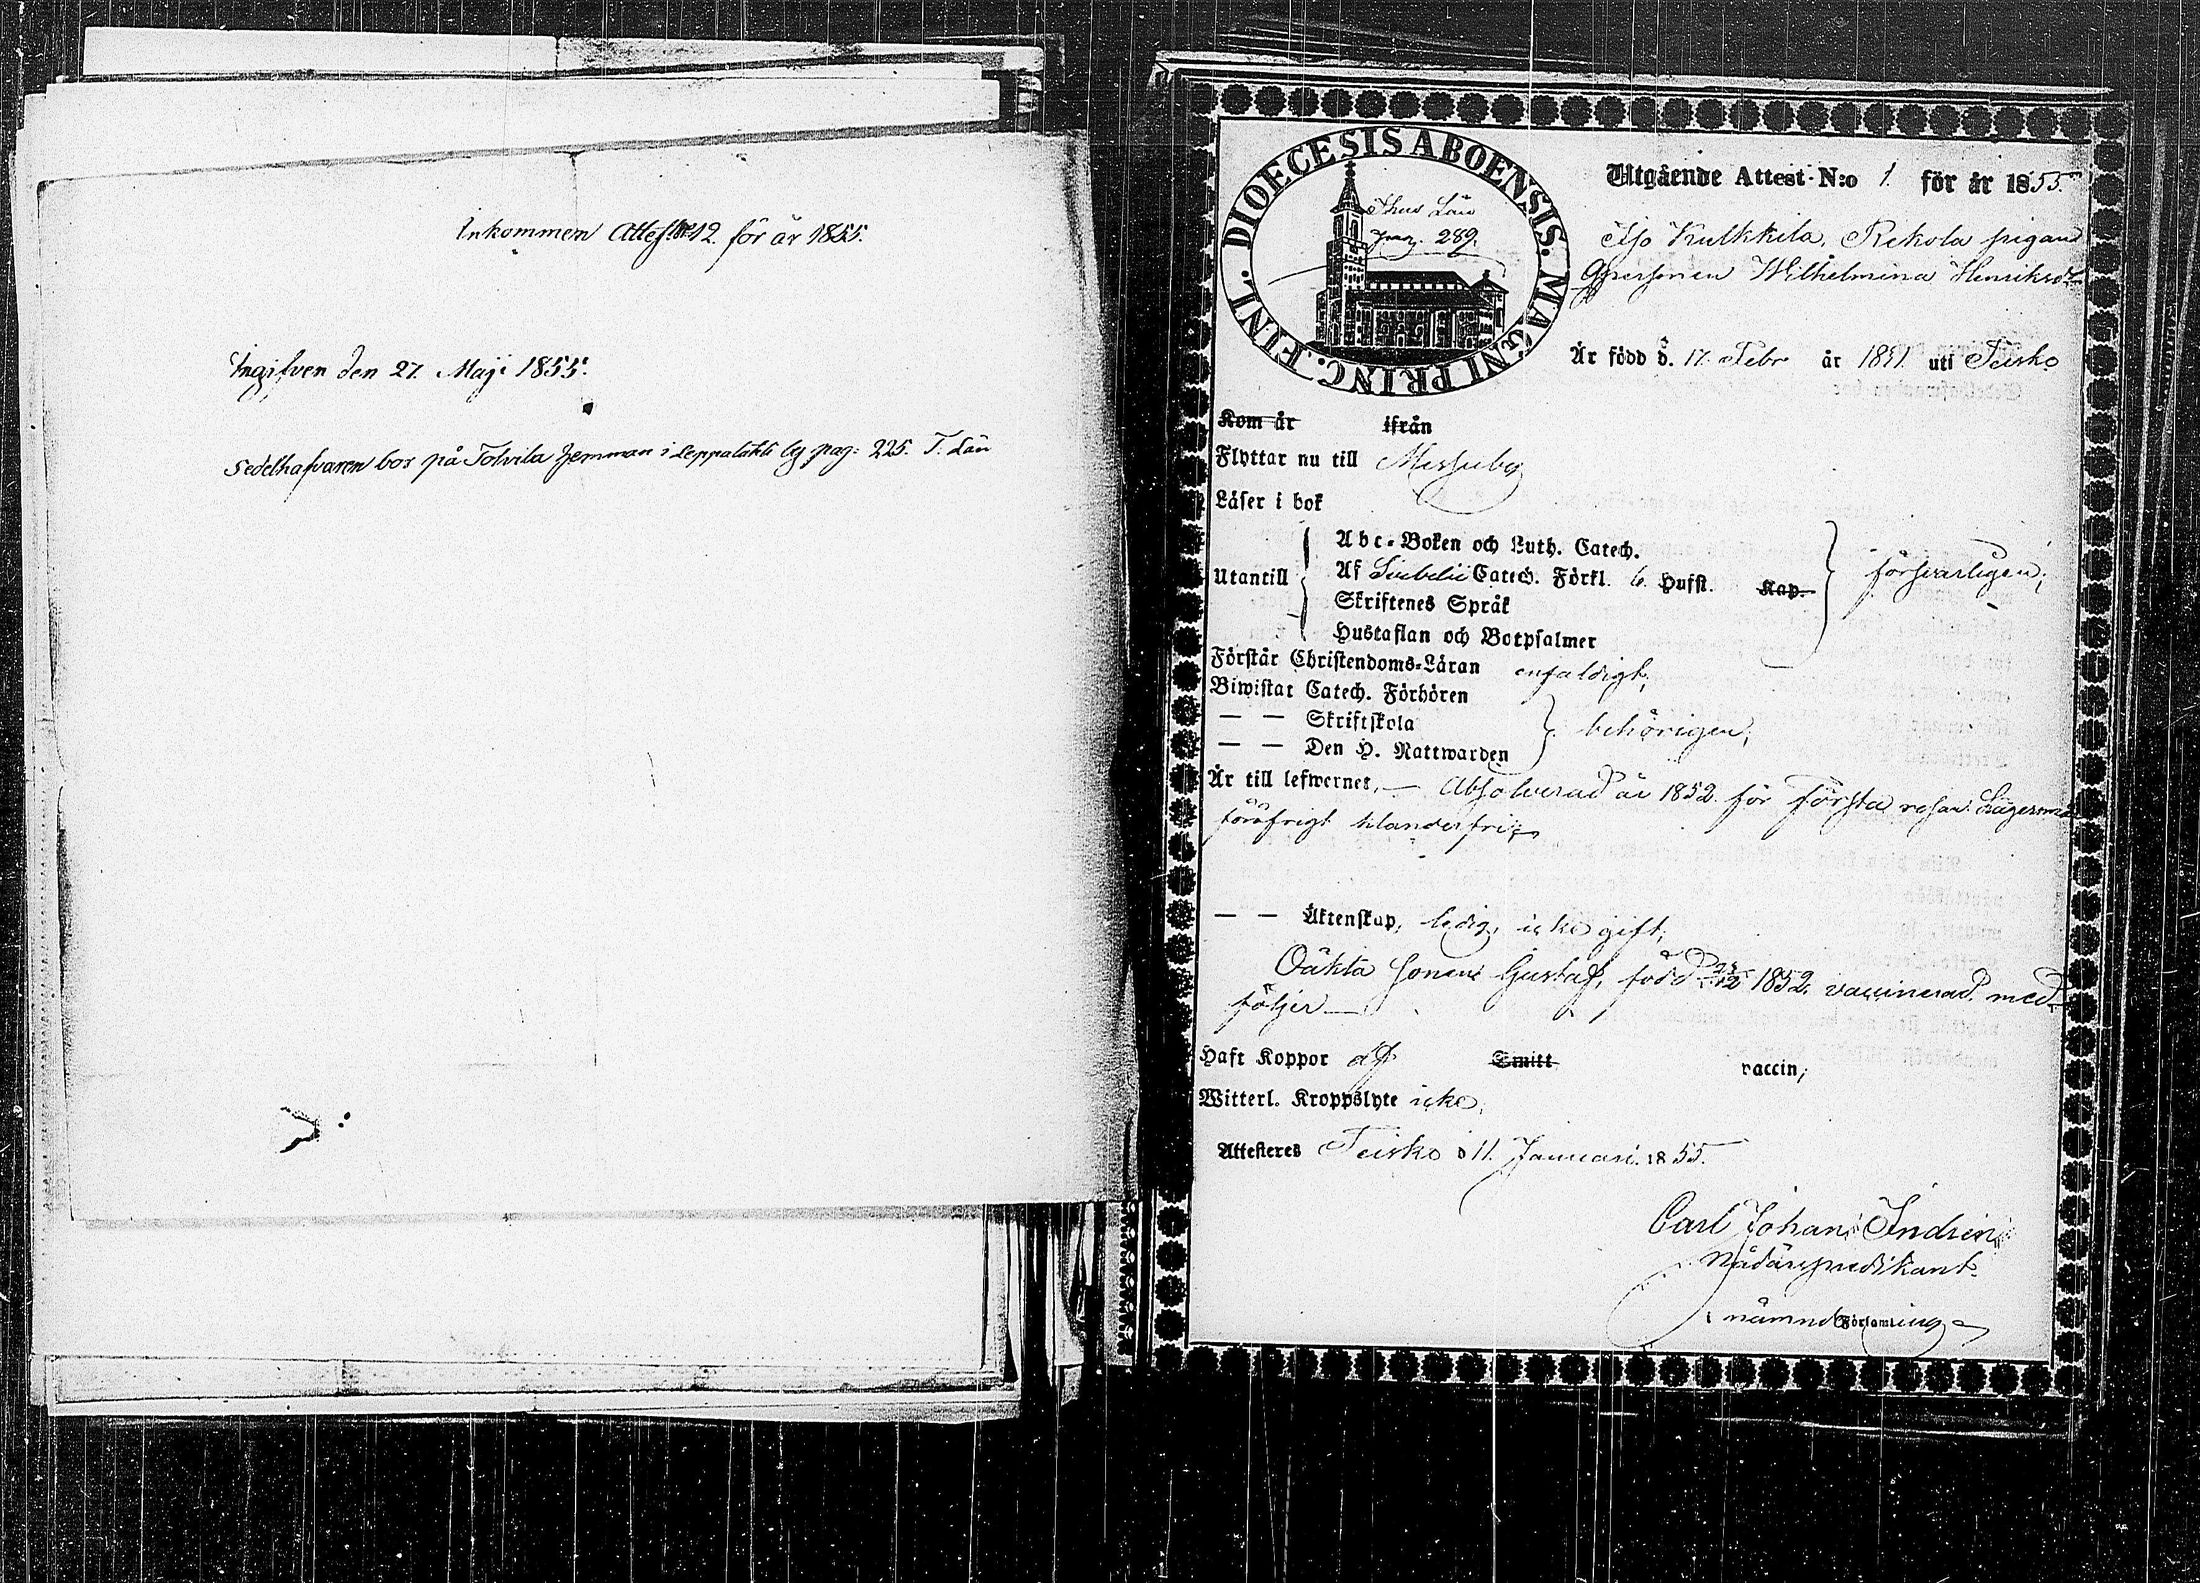 Inkommen Attest N:o 12. för år 1855.
Ingifven den 27. Maji 1855.
Sedelhafvaren bor på Tolvila hemman i Leppalaks by pag: 225. T. Län
DIOECESIS ABOENSIS. MAGNI PRINC. FINL.
Län
pag. 289.
Utgående Attest-N:o 1. för år 1855.
Iso Kulkkila, Rekola pigan
Qpersonen Wilhelmina Henriksdr
Är född d. 17. Febr år 1831. uti Teisko
Kom år ifrån
Flyttar nu till Messuby
Läser i bok
Utantill
Abc-Boken och Luth. Catech.
Af Svebelii Catech. Förkl. 6. Hufst. Kap. försvarligen;
Skriftenes Språk
Hustaflan och Botpsalmer
Förstår Christendoms-Läran enfaldigt;
Biwistat Catech. Förhören
— — Skriftskola behörigen;
— — Den H. Nattwarden
Är till lefwernet, — Absolverad år 1852. för första resan Lägersmål
föröfrigt klanderfri;
— — Äktenskap, ledig, icke gift;
Oäkta sonen Gustaf, född 25/12 1852. vaccinerad. med-
följer —
Haft Koppor af Smitt vaccin;
Witterl. Kroppslyte icke;
Attesteres Teisko d 11. Januari. 1855.
Carl Johan Indrén
Nådårspredikant.
i nämnde Församling